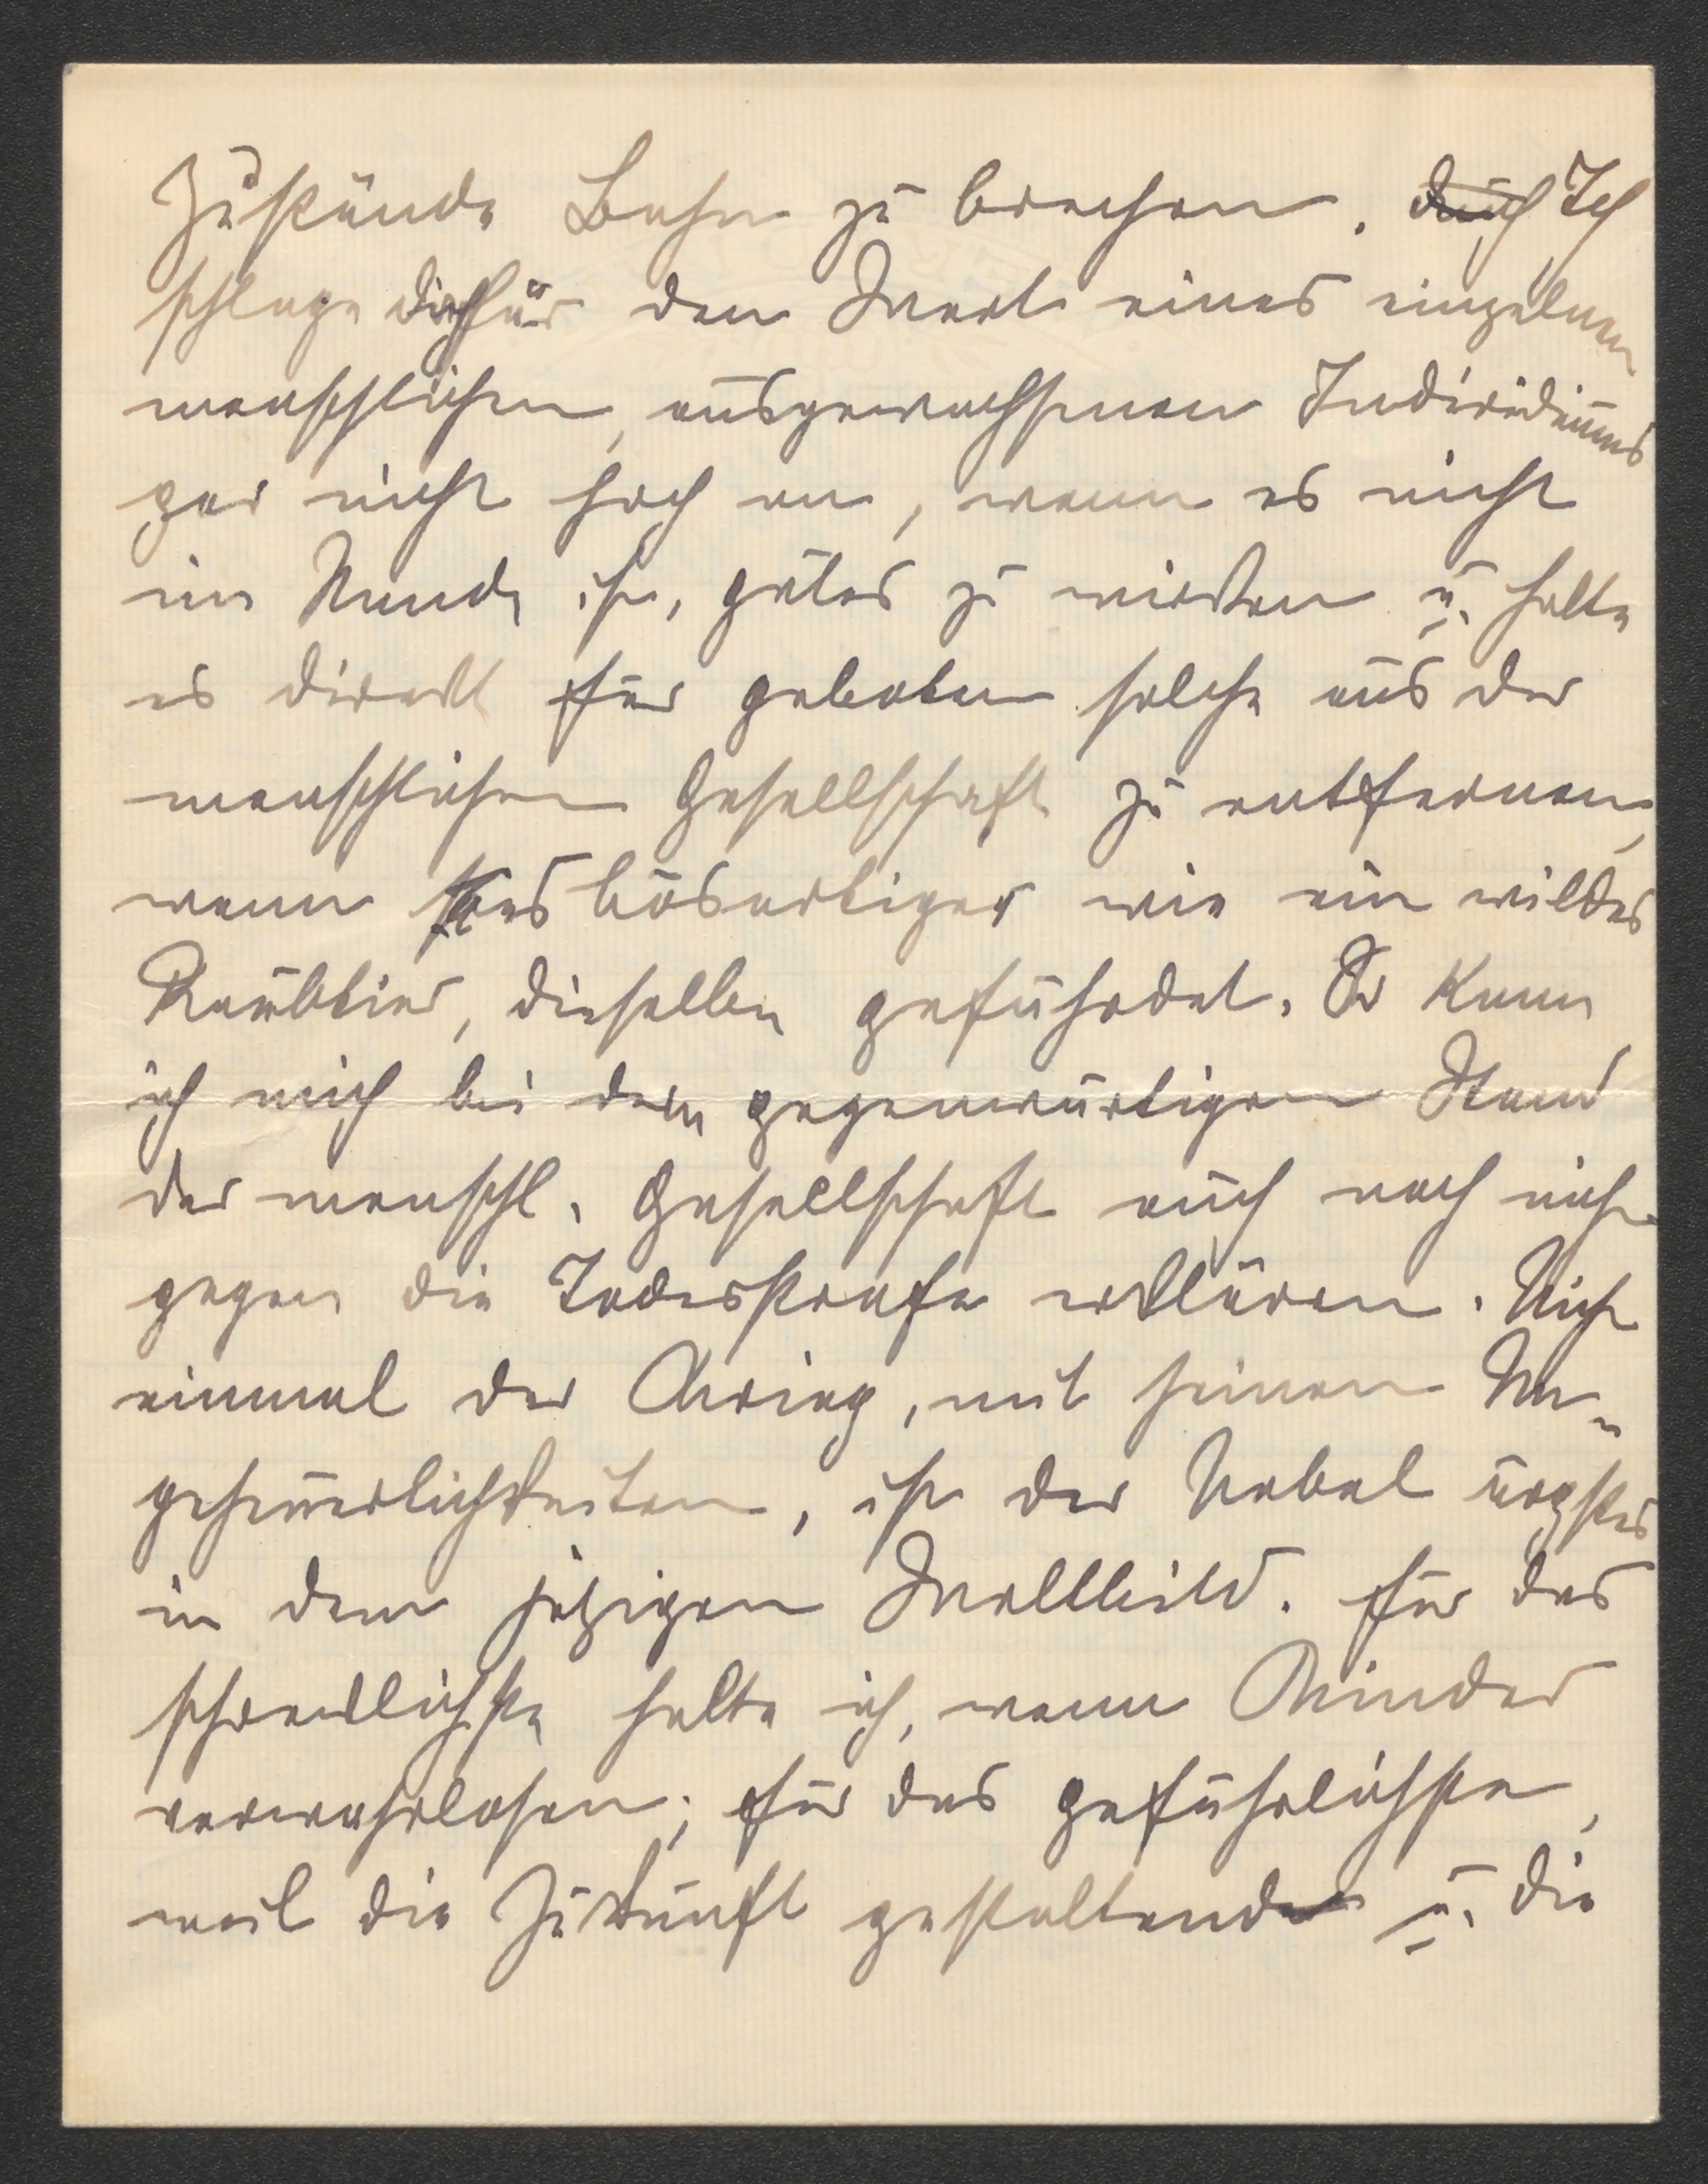 Zustände Bahn zu brechen. Ich
schlage dafür den Wert eines einzelnen
menschlichen, ausgewachsenen Individiums
gar nicht hoch an, wenn es nicht
im Stande ist, gutes zu wirken u. halte
es direkt für geboten solche aus der
menschlichen Gesellschaft zu entfernen,
wenn es bösartiger wie ein wildes
Raubtier, dieselben gefährdet. So kann
ich mich bei dem gegenwärtigen Stand
der menschl. Gesellschaft auch noch nicht
gegen die Todesstrafe erklären. Nicht
einmal der Krieg, mit seinen Un-
geheuerlichkeiten, ist der Uebel ärgstes
in dem jetzigen Weltbild. Für das
schrecklichste halte ich, wenn Kinder
verwahrlosen; für das gefährlichste,
weil die Zukunft gestaltende u. die